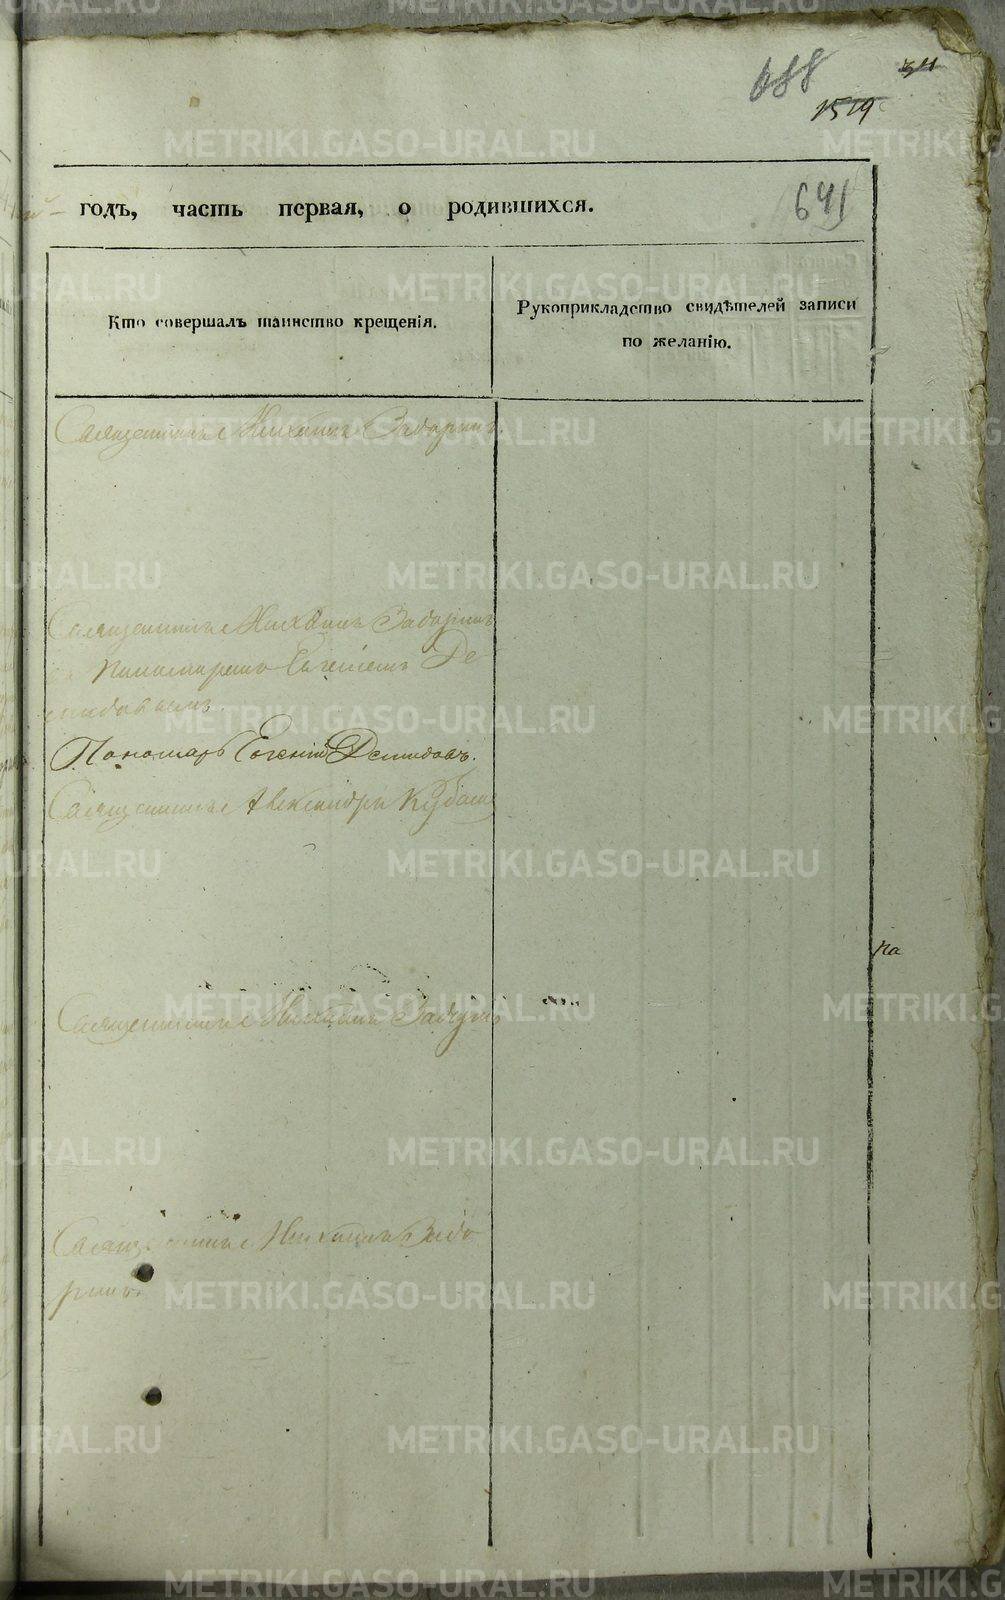 688
1519
641
годъ, часть первая, о родившихся.
Кто совершалъ таинство крещенія.
Рукоприкладство свидѣтелей записи
по желанію.
Священникъ Михаилъ
Священникъ Михаилъ
Пономаремъ Евгеніемъ Де
мидовымъ
Пономарь Евгеній Демидовъ.
Священникъ Александръ
на
Священникъ Михаилъ
Священникъ Михаилъ
METRIKI.GASO-URAL.RU